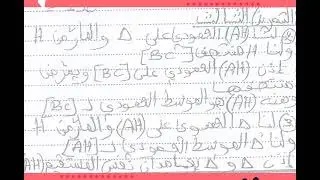 التمرين الثالث
لدينا (AH) العمودي على Δ والمار من H
ولنا H منتصف [BC]
إذن (AH) العمودي على [BC] ويمر من
منتصفها
ومنه (AH) هو الموسط العمودي لـ [BC]
لنا Δ العمودي على (AH) والمار من H
ولنا Δ الموسط العمودي لـ [AH]
إذن Δ و Δ يعامدان نفس المستقيم (AH)